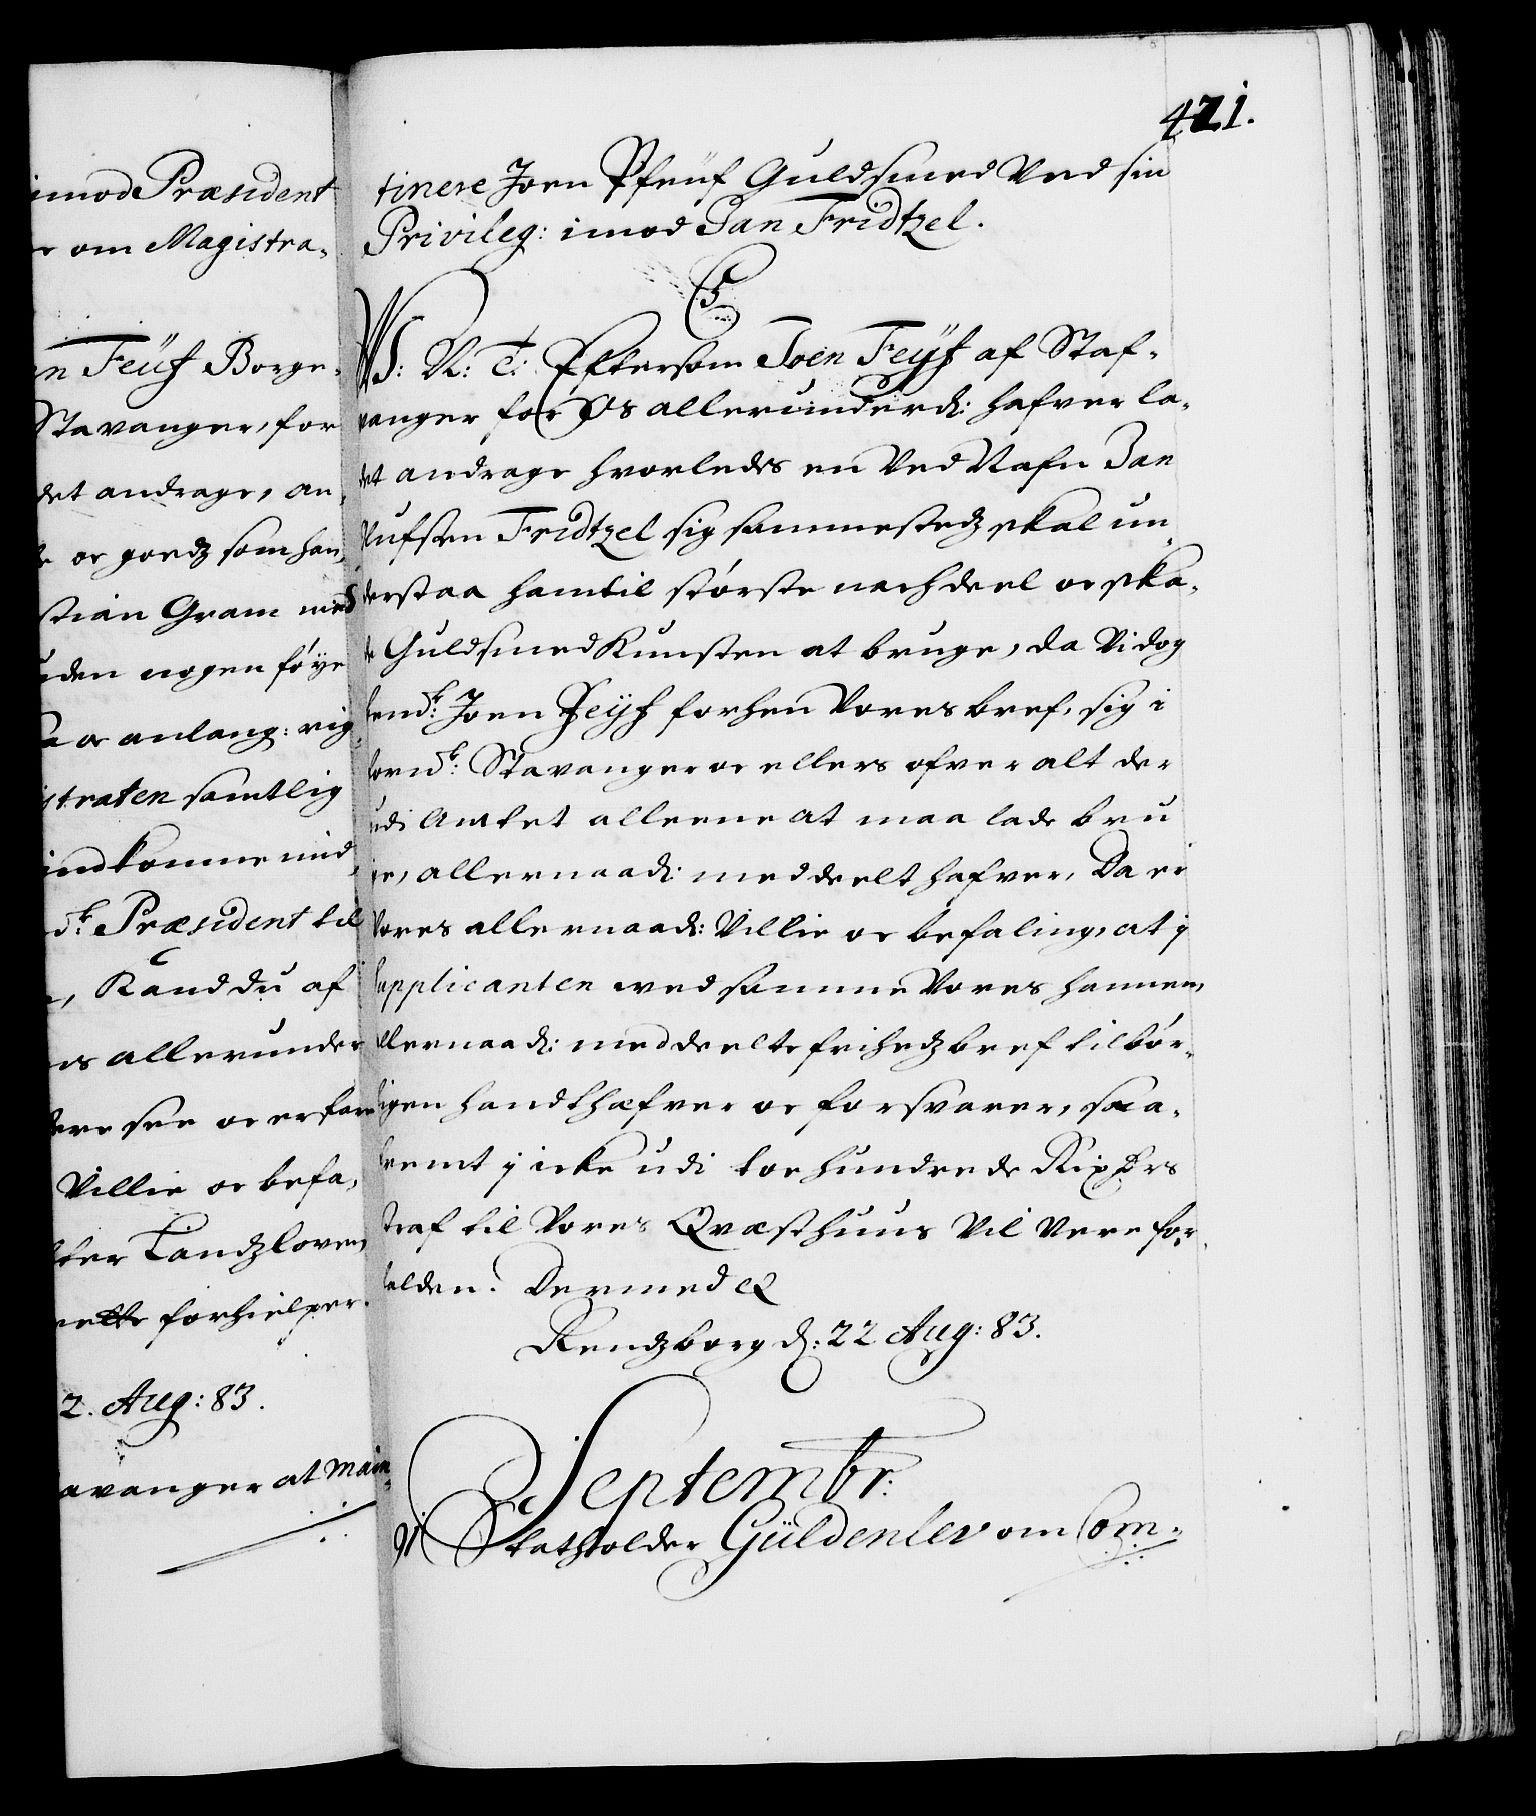 imod Præsident
om Magistra-
Feuf Borge-
Stavanger, for
det andrage, an-
oc goedz som han,
stian Gram med
uden nogen føye
oc anlang: rig-
istraten samtlig
indkomme imid,
Præsident til
, Kand du af
os allerunder
see oc erfare
Villie oc befa,
Landzloven
rette forhielper.
2. Aug: 83.
avanger at main-
421.
tinere Joen Pfeuf Guldsmed Ved sin
Privileg: imod Jan Fridtzel.
C5
W: G: T: Eftersom Joen Feyf af Staf-
vanger for Os allerunderd: hafver la-
det andrage hvorledes en Ved Nafn Jan
Ulufsen Fridtzel sig sammestedz skal un-
derstaa ham til største nachdeel oc ska-
de Guldsmed Kunsten at bruge, da Vi dog
bemt: Joen Feyf forhen Vores bref, sig i
bemt: Stavanger oc ellers ofver alt der
udi Amtet alleene at maa lade bru
ge, allernaad: meddeelt hafver, Da er
Vores allernaad: Villie oc befaling, at i
Supplicanten ved samme Vores hannem,
allernaad: meddeelte frihedz bref tilbør-
ligen handthæfver oc forsvarer, saa-
fremt i icke udi toe hundrede Rixdrs
straf til Vores Qvæsthuus Vil Vere for-
falden. Dermed etc
Rendzborg d: 22 Aug: 83.
Septembr:
Vi Statholder Güldenlev om Com-